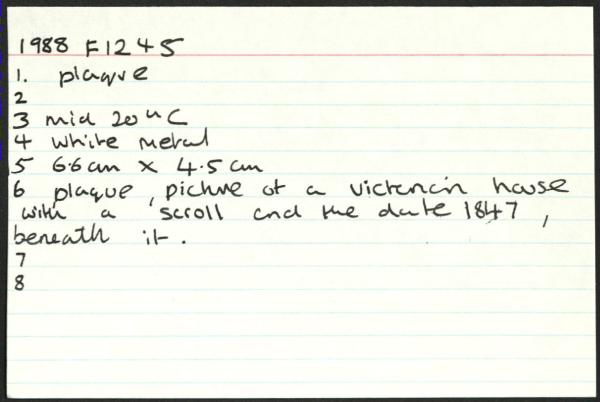 1988 F1245
1. plaque
2
3 mid 20th C
4 white metal
5 6.6cm x 4.5cm
6 plaque, picture of a victorian house
with a scroll and the date 1847,
beneath it.
7
8